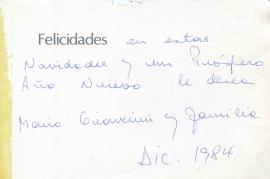 Felicidades en estas
Navidades y un Próspero
Año Nuevo le desea
Mario y familia
Dic. 1984